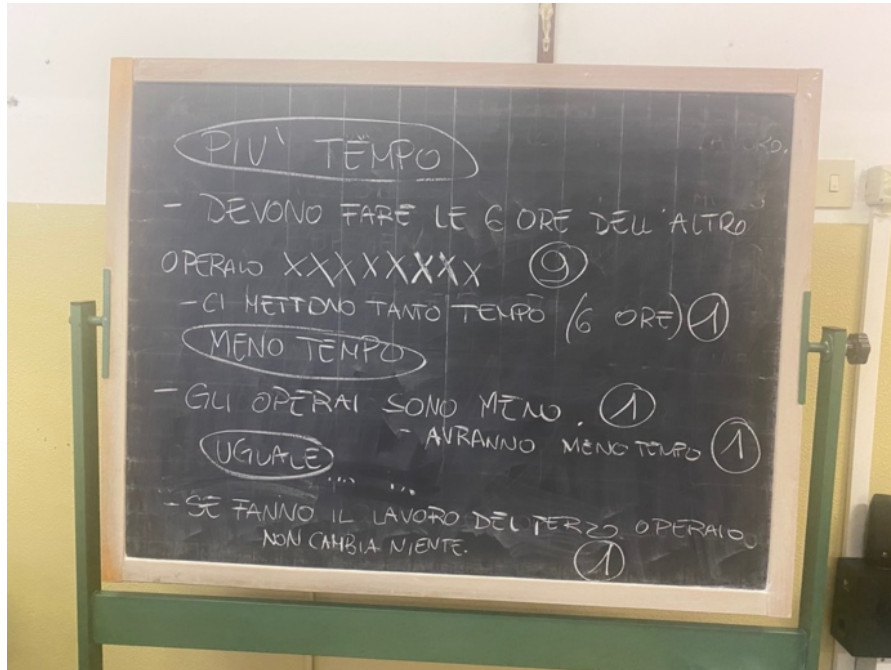 PIU' TEMPO
- DEVONO FARE LE 6 ORE DELL'ALTRO
OPERAIO XXXXXXXX 9
- CI METTONO TANTO TEMPO (6 ORE) 1
MENO TEMPO
- GLI OPERAI SONO MENO. 1
- AVRANNO MENO TEMPO 1
UGUALE
... ...
- SE FANNO IL LAVORO DEL TERZO OPERAIO
NON CAMBIA NIENTE.
1